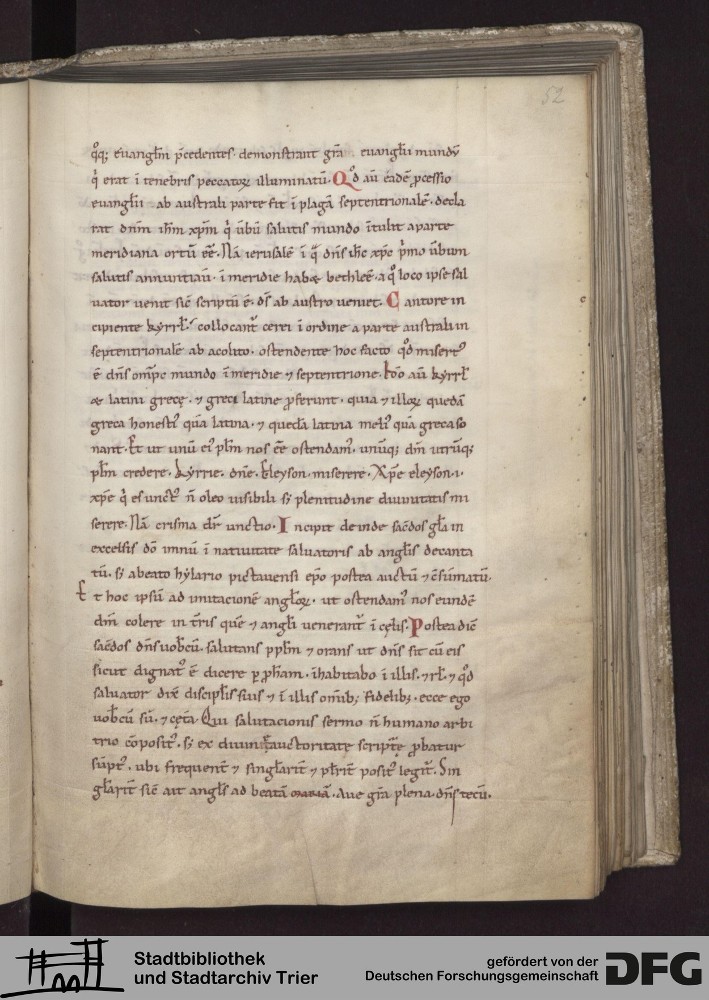 52
q̊q; euangl̄m p̄cedentes. demonstrant gr̄a euangl̄ii mundū
q̇ erat ī tenebris peccatoꝝ illuminatū. Qď aū eadē ꝓcessio
euangl̄ii ab australi parte fit ī plagā septentrionalē. decla
rat dn̄m ih̄m xp̄m q̇ ūbū salutis mundo ītulit a parte
meridiana ortū ēē. Nā ierusalē ī q̄ dn̄s ih̄c xp̄c p̄mo ūbum
salutis annuntiau̅. ī meridie habet bethleē. a q̊ loco ipse sal
uator uenit sic̄ scriptū ē. dš ab austro ueniet. Cantore in
cipiente kyrrl̄. collocant᷑ cerei ī ordine a parte australi in
septentrionalē ab acolito. ostendente hoc facto qď misertꝰ
ē dn̄s omp̄c mundo ī meridie ⁊ septentrione. Iďo aū kyrrl̄
et latini grecę. ⁊ greci latine ꝓferunt. quia ⁊ illoꝝ quedā
greca honestiꝰ quā latina. ⁊ quedā latina meliꝰ quā greca so
nant. Et ut unū eiꝰ pl̄m nos ēē ostendamꝰ. unūq; dm̄ utrūq;
pl̄m credere. kyrrie. dn̄e. Eleyson. miserere. Xp̄e eleyson .i.
xp̄e q̇ es unctꝰ n̄ oleo uisibili s; plenitudine diuinitatis mi
serere. Nā crisma dr̄ unctio. Incipit deinde sacdos gl̄a in
excelsis dō imnū ī natiuitate saluatoris ab angl̄is decanta
tū. s; a beato hylario pictauensi ep̄o postea auctū ⁊ c̄sūmatū.
Et hoc ipsū ad imitacionē angl̄oꝝ. ut ostendamꝰ nos eundē
dm̄ colere in tr̄is quē ⁊ angl̄i uenerant᷑ ī cęlis. Postea dic̄
sac̄dos dn̄s uob̄cū. salutans ppl̄m ⁊ orans ut dn̄s sit cū eis
sicut dignatꝰ ē dicere ꝑ ꝓph̄am. īhabitabo ī illis. ⁊ rl̄. ⁊ qď
saluator dix̄ discipl̄is suis ⁊ ī illis om̄ib; fidelib;. ecce ego
uob̄cū sū. ⁊ cęta. Qui salutacionis sermo n̄ humano arbi
trio c̄positꝰ. s; ex diuina auctoritate scriptę ꝓbatur
sūptꝰ. ubi frequent̄ ⁊ singl̄arit̄ ⁊ pl̄rit̄ positꝰ legit᷑. Sin
gl̄arit̄ sic̄ ait angl̄s ad beatā mariā. Aue gr̄a plena. dn̄s tecū.
c
Stadtbibliothek
und Stadtarchiv Trier
gefördert von der
Deutschen Forschungsgemeinschaft
DFG